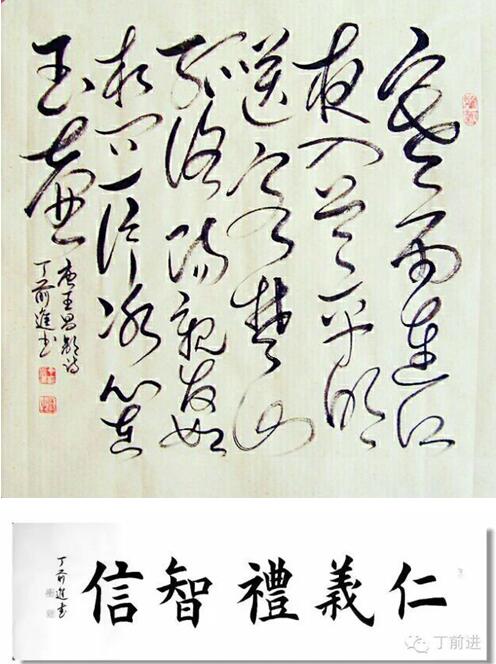 寒雨連江
夜入吳平明
送客楚山
孤洛陽親友如
相問一片冰心在
玉壺
唐王昌齡詩
丁前進书
仁義禮智信
丁前進书
丁前进